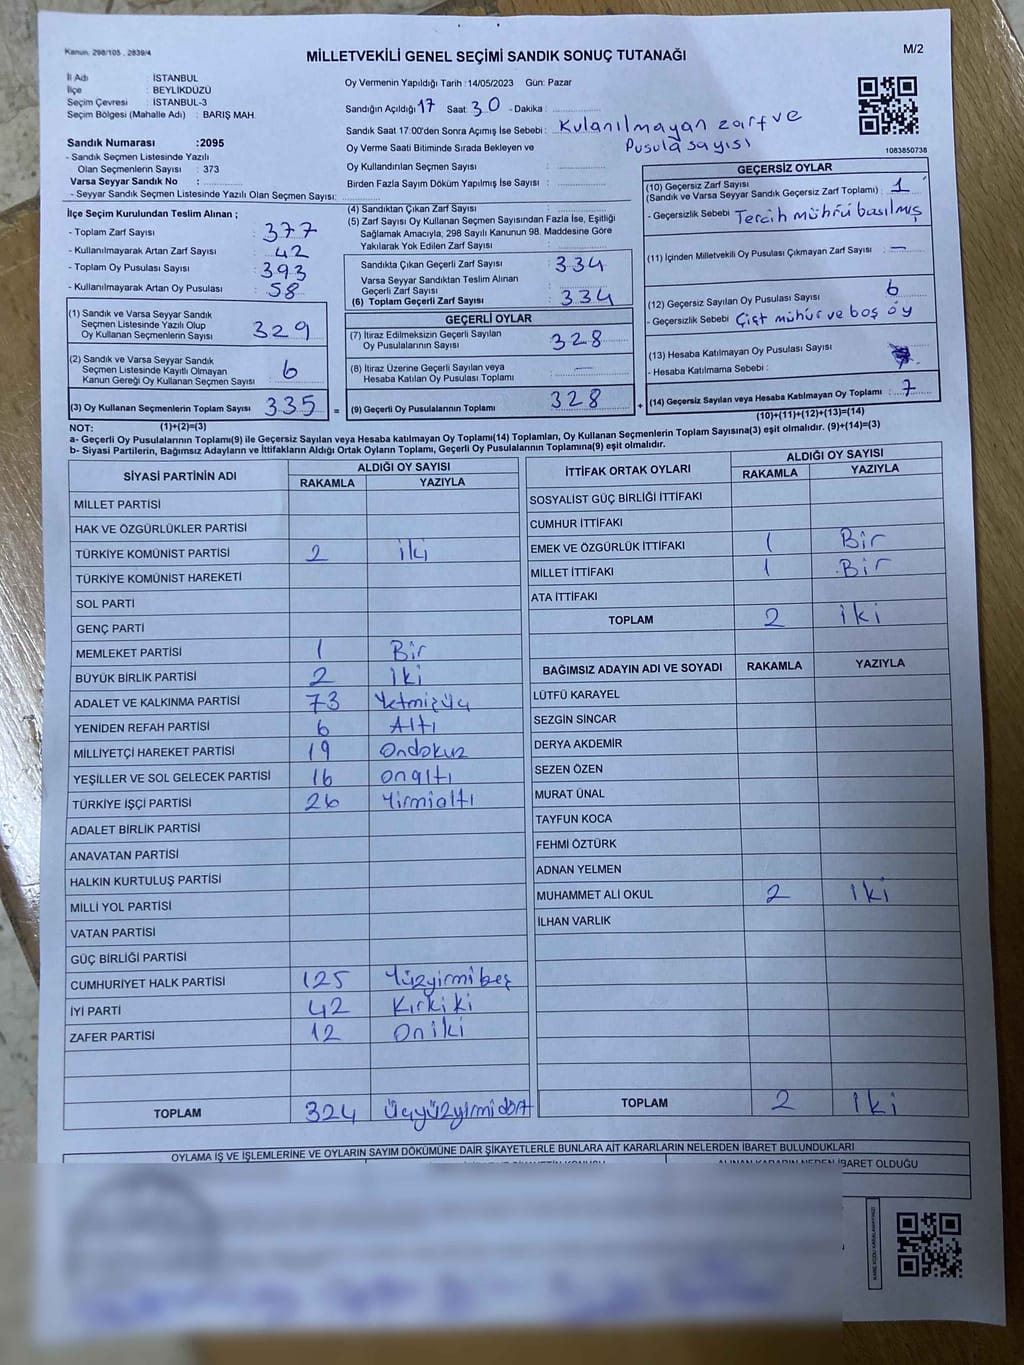 Kanun. 298/105 , 2839/4
MİLLETVEKİLİ GENEL SEÇİMİ SANDIK SONUÇ TUTANAĞI
M/2
İl Adı : İSTANBUL
İlçe : BEYLİKDÜZÜ
Seçim Çevresi : İSTANBUL-3
Seçim Bölgesi (Mahalle Adı) : BARIŞ MAH.
Sandık Numarası :2095
- Sandık Seçmen Listesinde Yazılı
Olan Seçmenlerin Sayısı : 373
Varsa Seyyar Sandık No :
- Seyyar Sandık Seçmen Listesinde Yazılı Olan Seçmen Sayısı:
Oy Vermenin Yapıldığı Tarih : 14/05/2023 Gün: Pazar
Sandığın Açıldığı 17 Saat 30 - Dakika :
Sandık Saat 17:00'den Sonra Açımış İse Sebebi : Kulanılmayan zarf ve
Pusula sayısı
Oy Verme Saati Bitiminde Sırada Bekleyen ve
Oy Kullandırılan Seçmen Sayısı :
Birden Fazla Sayım Döküm Yapılmış İse Sayısı :
1083850738
İlçe Seçim Kurulundan Teslim Alınan ;
- Toplam Zarf Sayısı : 377
- Kullanılmayarak Artan Zarf Sayısı : 42
- Toplam Oy Pusulası Sayısı : 393
- Kullanılmayarak Artan Oy Pusulası : 58
(1) Sandık ve Varsa Seyyar Sandık
Seçmen Listesinde Yazılı Olup
Oy Kullanan Seçmenlerin Sayısı 329
(2) Sandık ve Varsa Seyyar Sandık
Seçmen Listesinde Kayıtlı Olmayan
Kanun Gereği Oy Kullanan Seçmen Sayısı 6
(3) Oy Kullanan Seçmenlerin Toplam Sayısı 335 =
(1)+(2)=(3)
(4) Sandıktan Çıkan Zarf Sayısı
(5) Zarf Sayısı Oy Kullanan Seçmen Sayısından Fazla İse, Eşitliği
Sağlamak Amacıyla, 298 Sayılı Kanunun 98. Maddesine Göre
Yakılarak Yok Edilen Zarf Sayısı
Sandıkta Çıkan Geçerli Zarf Sayısı 334
Varsa Seyyar Sandıktan Teslim Alınan
Geçerli Zarf Sayısı
(6) Toplam Geçerli Zarf Sayısı 334
GEÇERLİ OYLAR
(7) İtiraz Edilmeksizin Geçerli Sayılan
Oy Pusulalarının Sayısı 328
(8) İtiraz Üzerine Geçerli Sayılan veya
Hesaba Katılan Oy Pusulası Toplamı —
(9) Geçerli Oy Pusulalarının Toplamı 328 +
GEÇERSİZ OYLAR
(10) Geçersiz Zarf Sayısı
(Sandık ve Varsa Seyyar Sandık Geçersiz Zarf Toplamı) : 1
- Geçersizlik Sebebi Tercih mührü basılmış
(11) İçinden Milletvekili Oy Pusulası Çıkmayan Zarf Sayısı : —
(12) Geçersiz Sayılan Oy Pusulası Sayısı 6
- Geçersizlik Sebebi Çift mühür ve boş oy
(13) Hesaba Katılmayan Oy Pusulası Sayısı
- Hesaba Katılmama Sebebi :
(14) Geçersiz Sayılan veya Hesaba Katılmayan Oy Toplamı : 7
(10)+(11)+(12)+(13)=(14)
NOT:
a- Geçerli Oy Pusulalarının Toplamı(9) ile Geçersiz Sayılan veya Hesaba katılmayan Oy Toplamı(14) Toplamları, Oy Kullanan Seçmenlerin Toplam Sayısına(3) eşit olmalıdır. (9)+(14)=(3)
b- Siyasi Partilerin, Bağımsız Adayların ve İttifakların Aldığı Ortak Oyların Toplamı, Geçerli Oy Pusulalarının Toplamına(9) eşit olmalıdır.
SİYASİ PARTİNİN ADI
ALDIĞI OY SAYISI
RAKAMLA YAZIYLA
MİLLET PARTİSİ
HAK VE ÖZGÜRLÜKLER PARTİSİ
TÜRKİYE KOMÜNİST PARTİSİ 2 iki
TÜRKİYE KOMÜNİST HAREKETİ
SOL PARTİ
GENÇ PARTİ
MEMLEKET PARTİSİ 1 Bir
BÜYÜK BİRLİK PARTİSİ 2 İki
ADALET VE KALKINMA PARTİSİ 73 Yetmişüç
YENİDEN REFAH PARTİSİ 6 Altı
MİLLİYETÇİ HAREKET PARTİSİ 19 Ondokuz
YEŞİLLER VE SOL GELECEK PARTİSİ 16 onaltı
TÜRKİYE İŞÇİ PARTİSİ 26 Yirmialtı
ADALET BİRLİK PARTİSİ
ANAVATAN PARTİSİ
HALKIN KURTULUŞ PARTİSİ
MİLLİ YOL PARTİSİ
VATAN PARTİSİ
GÜÇ BİRLİĞİ PARTİSİ
CUMHURİYET HALK PARTİSİ 125 Yüzyirmibeş
İYİ PARTİ 42 Kırkiki
ZAFER PARTİSİ 12 Oniki
TOPLAM 324 Üçyüzyirmidört
İTTİFAK ORTAK OYLARI
ALDIĞI OY SAYISI
RAKAMLA YAZIYLA
SOSYALİST GÜÇ BİRLİĞİ İTTİFAKI
CUMHUR İTTİFAKI
EMEK VE ÖZGÜRLÜK İTTİFAKI 1 Bir
MİLLET İTTİFAKI 1 Bir
ATA İTTİFAKI
TOPLAM 2 iki
BAĞIMSIZ ADAYIN ADI VE SOYADI RAKAMLA YAZIYLA
LÜTFÜ KARAYEL
SEZGİN SİNCAR
DERYA AKDEMİR
SEZEN ÖZEN
MURAT ÜNAL
TAYFUN KOCA
FEHMİ ÖZTÜRK
ADNAN YELMEN
MUHAMMET ALİ OKUL 2 İki
İLHAN VARLIK
TOPLAM 2 İki
OYLAMA İŞ VE İŞLEMLERİNE VE OYLARIN SAYIM DÖKÜMÜNE DAİR ŞİKAYETLERLE BUNLARA AİT KARARLARIN NELERDEN İBARET BULUNDUKLARI
ALINAN KARARIN NEDEN İBARET OLDUĞU